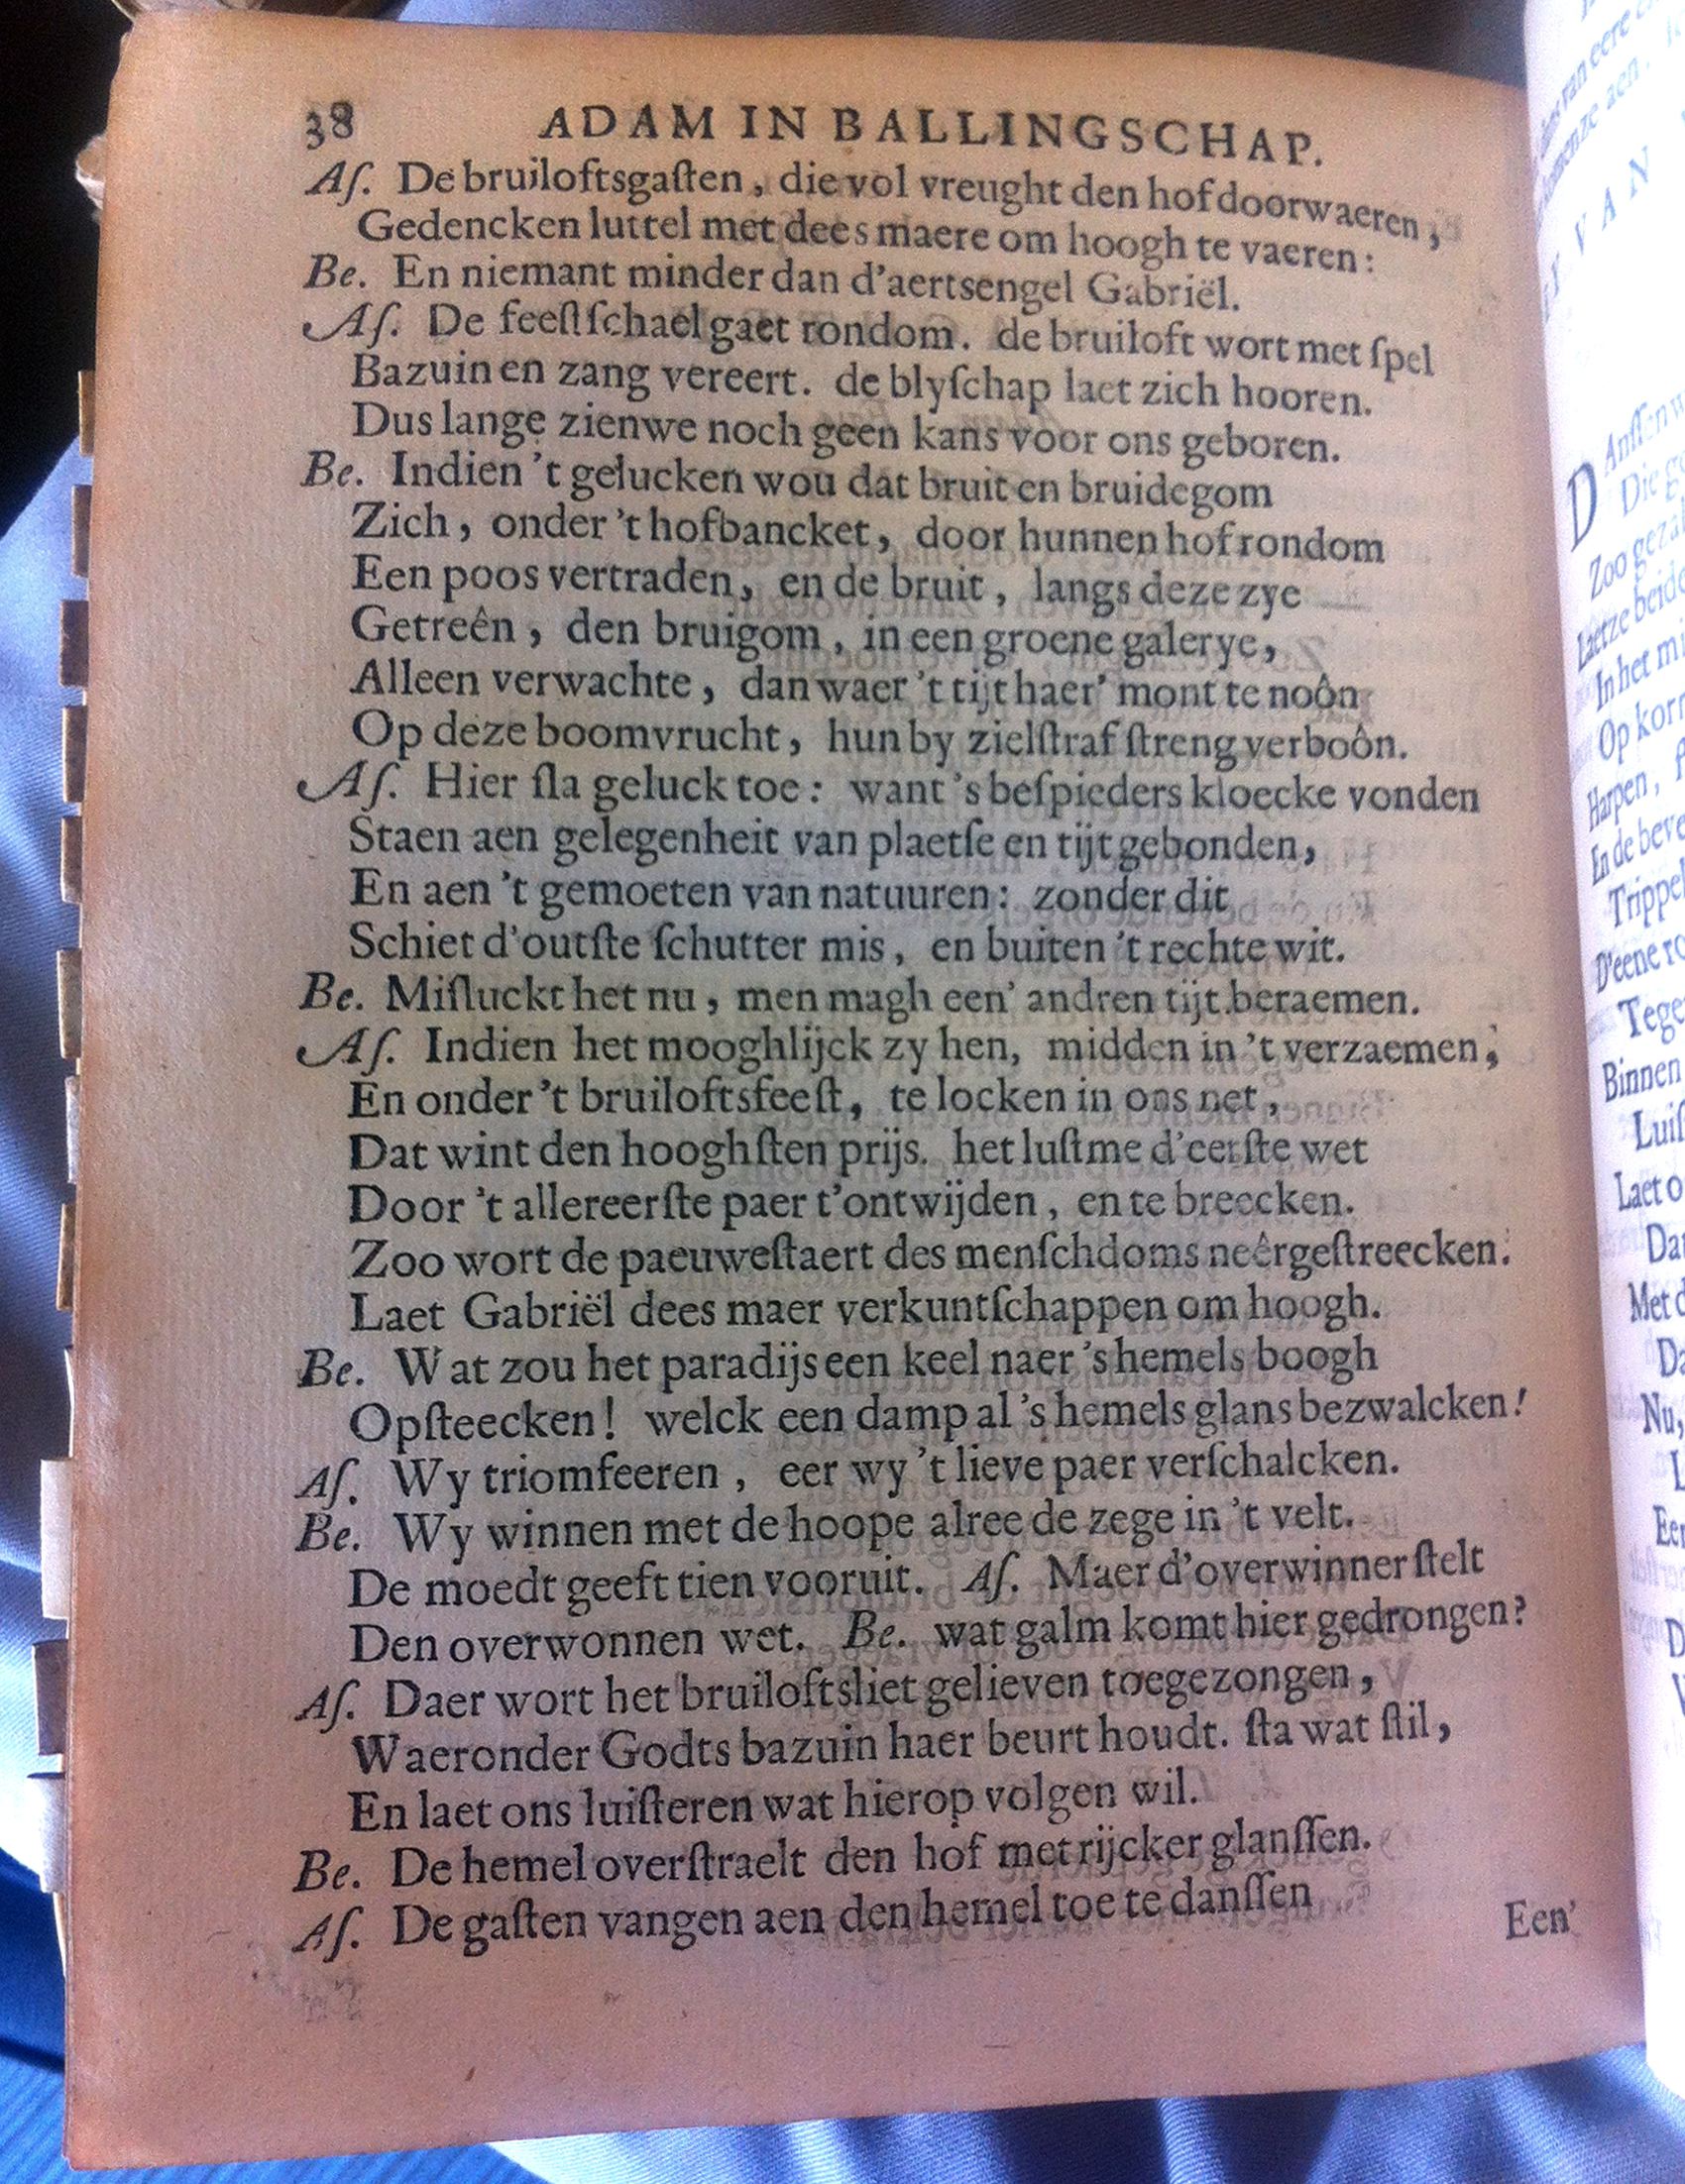 38 ADAM IN BALLINGSCHAP.
Aſ. De bruiloftsgaſten, die vol vreught den hof doorwaeren,
Gedencken luttel met dees maere om hoogh te vaeren:
Be. En niemant minder dan d'aertsengel Gabriël.
Aſ. De feeſtſchael gaet rondom. de bruiloft wort met ſpel
Bazuin en zang vereert. de blyſchap laet zich hooren.
Dus lange zienwe noch geen kans voor ons geboren.
Be. Indien 't gelucken wou dat bruit en bruidegom
Zich, onder 't hofbancket, door hunnen hof rondom
Een poos vertraden, en de bruit, langs deze zye
Getreên, den bruigom, in een groene galerye,
Alleen verwachte, dan waer 't tijt haer' mont te noôn
Op deze boomvrucht, hun by zielſtraf ſtreng verboôn.
Aſ. Hier ſla geluck toe: want 's beſpieders kloecke vonden
Staen aen gelegenheit van plaetſe en tijt gebonden,
En aen 't gemoeten van natuuren: zonder dit
Schiet d'outſte ſchutter mis, en buiten 't rechte wit.
Be. Miſluckt het nu, men magh een' andren tijt beraemen.
Aſ. Indien het mooghlijck zy hen, midden in 't verzaemen,
En onder 't bruiloftsfeeſt, te locken in ons net,
Dat wint den hooghſten prijs. het luſtme d'eerſte wet
Door 't allereerſte paer t'ontwijden, en te breecken.
Zoo wort de paeuweſtaert des menſchdoms neêrgeſtreecken.
Laet Gabriël dees maer verkuntſchappen om hoogh.
Be. Wat zou het paradijs een keel naer 's hemels boogh
Opſteecken! welck een damp al 's hemels glans bezwalcken!
Aſ. Wy triomfeeren, eer wy 't lieve paer verſchalcken.
Be. Wy winnen met de hoope alree de zege in 't velt.
De moedt geeft tien vooruit. Aſ. Maer d'overwinner ſtelt
Den overwonnen wet. Be. wat galm komt hier gedrongen?
Aſ. Daer wort het bruiloftsliet gelieven toegezongen,
Waeronder Godts bazuin haer beurt houdt. ſta wat ſtil,
En laet ons luiſteren wat hierop volgen wil.
Be. De hemel overſtraelt den hof met rijcker glanſſen.
Aſ. De gaſten vangen aen den hemel toe te danſſen
Een'
VAN
Zoo
beide
In het
Op
Harpen,
En de
D'eene
Binnen
Laet
Met
Nu,